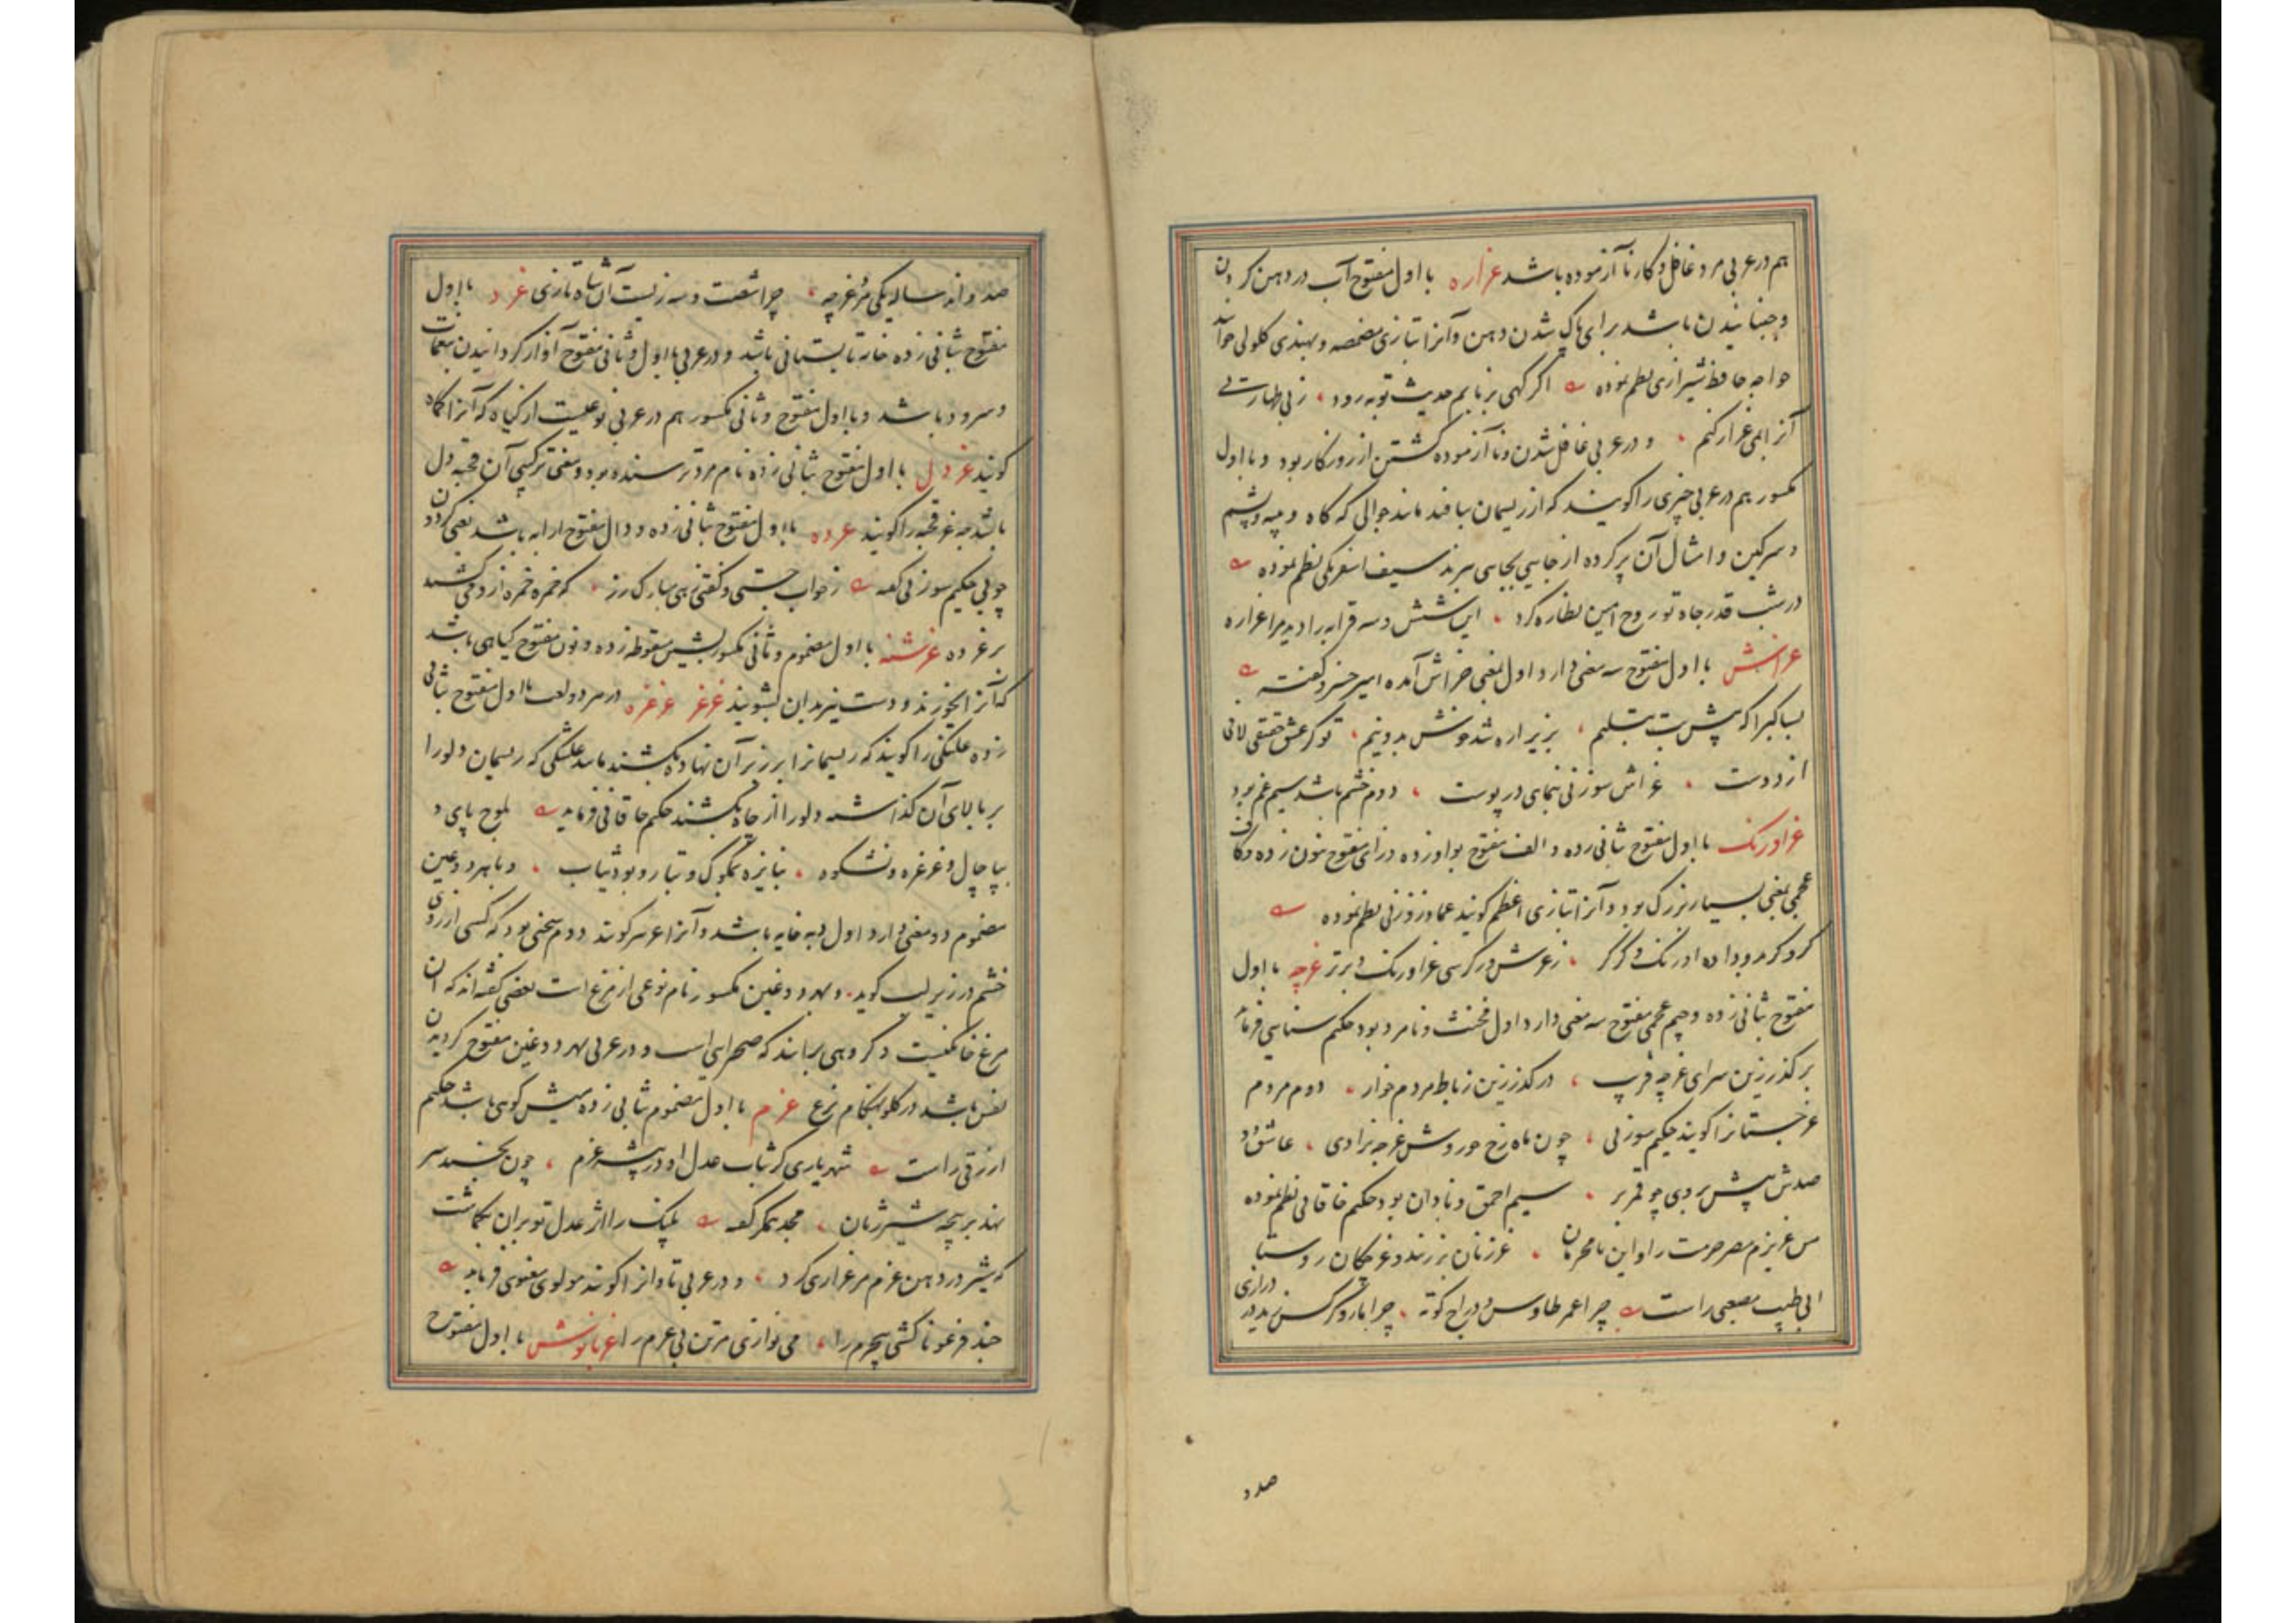 هم در عربی مرد غافل و کار نا آزموده باشد غراره با اول مفتوح آب در دهن کردن
و جنبانیدن باشد برای پاک شدن دهن و آنرا بتازی مضمضه و بهندی کلولی خوانند
خواجه حافظ شیرازی نظم نموده اگر گهی بزبانم حدیث توبه رود ، ز بی طهارتی
آنرا بمی غراره کنم ، و در عربی غافل شدن و نا آزموده گشتن از روزکار بود و با اول
مکسور هم در عربی چیزی را گویند که از ریسمان ببافند مانند جوالی که کاه و پنبه و پشم
و سرکین و امثال آن پر کرده از جایی بجایی برند سیف اسفرنکی نظم نموده
در شب قدر جاه تو روح امین نظاره کرد ، این شش و سه قرابه را دید مرا غراره
غراش با اول مفتوح سه معنی دارد اول بمعنی خراش آمده امیر خسرو گفته
بسا کبرا که پیش بت بتسلیم ، بزیر اره شد خوش بدونیم ، تو کز عشق حقیقی لافی
از دوست ، غراش سوزنی بنمای در پوست ، دوم خشم باشد سیم غم بود
غراورنک با اول مفتوح بثانی زده و الف مفتوح بواو زده و رای مفتوح بنون زده و کاف
عجمی بمعنی بسیار بزرک بود و آنرا بتازی اعظم کویند عماد زوزنی نظم نموده
کردگر اورنک و گرگر ، ز عرش و کرسی غراورنک و برتر غرچه با اول
مفتوح بثانی زده و جیم عجمی مفتوح سه معنی دارد اول مخنث و نامرد بود حکیم سنایی فرماید
برگذر زین سرای غرچه فریب ، درگذر زین رباط مردم خوار ، دوم مردم
غرجستانرا کویند حکیم سوزنی ، چون ماه رخ حوروش غرچه نژادی ، عاشق و
صدش پیش بردی چو قمر بر ، سیم احمق و نادان بود حکیم خاقانی نظم نموده
من عزیزم مصر حرمت را و این نامحرمان ، غرزنان برزند و غرچکان روستا
ابی طیب مصعبی راست چرا عمر طاوس و دراج کوته ، چرا مار و کرکس زید در درازی
صد و
صد و اند ساله یکی مرد غرچه ، چرا شصت و سه زیست آن شاه تازی غرد با اول
مفتوح بثانی زده خانه تابستانی باشد و در عربی با اول و ثانی مفتوح آواز کردانیدن بنغمات
و سرود باشد و با اول مفتوح و ثانی مکسور هم در عربی نوعیست از کیاه که آنرا کماه
کویند غردل با اول مفتوح بثانی زده نام مرد ترسنده بود و معنی ترکیبی آن قحبه دل
باشد چه غر قحبه را کویند غرده با اول مفتوح بثانی زده و دال مفتوح ارابه باشد یعنی کردون
چوبی حکیم سوزنی گفته ز خواب جستی و گفتی زهی مبارک رز ، که خمره خمره ازو می کشند
بر غرده غرشنه با اول مضموم و ثانی مکسور بشین منقوطه زده و نون مفتوح کیاهی باشد
که آنرا بخورند و دست نیز بدان بشویند غرغر غرغره در سرد و لغت با اول مفتوح بثانی
زده غلتکی را کویند که ریسمانرا بر زبر آن نهاده بکشند مانند غلتکی که ریسمان دلو را
بر بالای آن گذاشته دلو را از چاه بکشند حکیم خاقانی فرماید بلوح پای و
بپاچال و غرغره و نشکوه ، بنایژه بمکوک و بتار و پود ثیاب ، و با هر دو غین
مضموم دو معنی دارد اول دبه خایه باشد و آنرا غر نیز کویند دوم سخنی بود که کسی از روی
خشم در زیر لب کوید ، و بهر دو غین مکسور نام نوعی از مرغ است بعضی گفته اند که آن
مرغ خانکیست و کروهی برانند که صحرایی است و در عربی بهر دو غین مفتوح کردیدن
نفس باشد در گلو هنکام نزع غرم با اول مضموم بثانی زده میش کوهی باشد حکیم
ازرقی راست شهریاری کز شتاب عدل او در بیشه غرم ، چون بخسبد سر
نهد بر پنجه شیر ژیان ، مجد همگر گفته پلنک را اثر عدل تو بران بگماشت
که شیر در دهن غرم مرغزاری کرد ، و در عربی تاوان را کویند مولوی معنوی فرماید
چند فرعونا کشی بیجرم را ، می نوازی مر تن بی غرم را غرنانوش با اول مفتوح